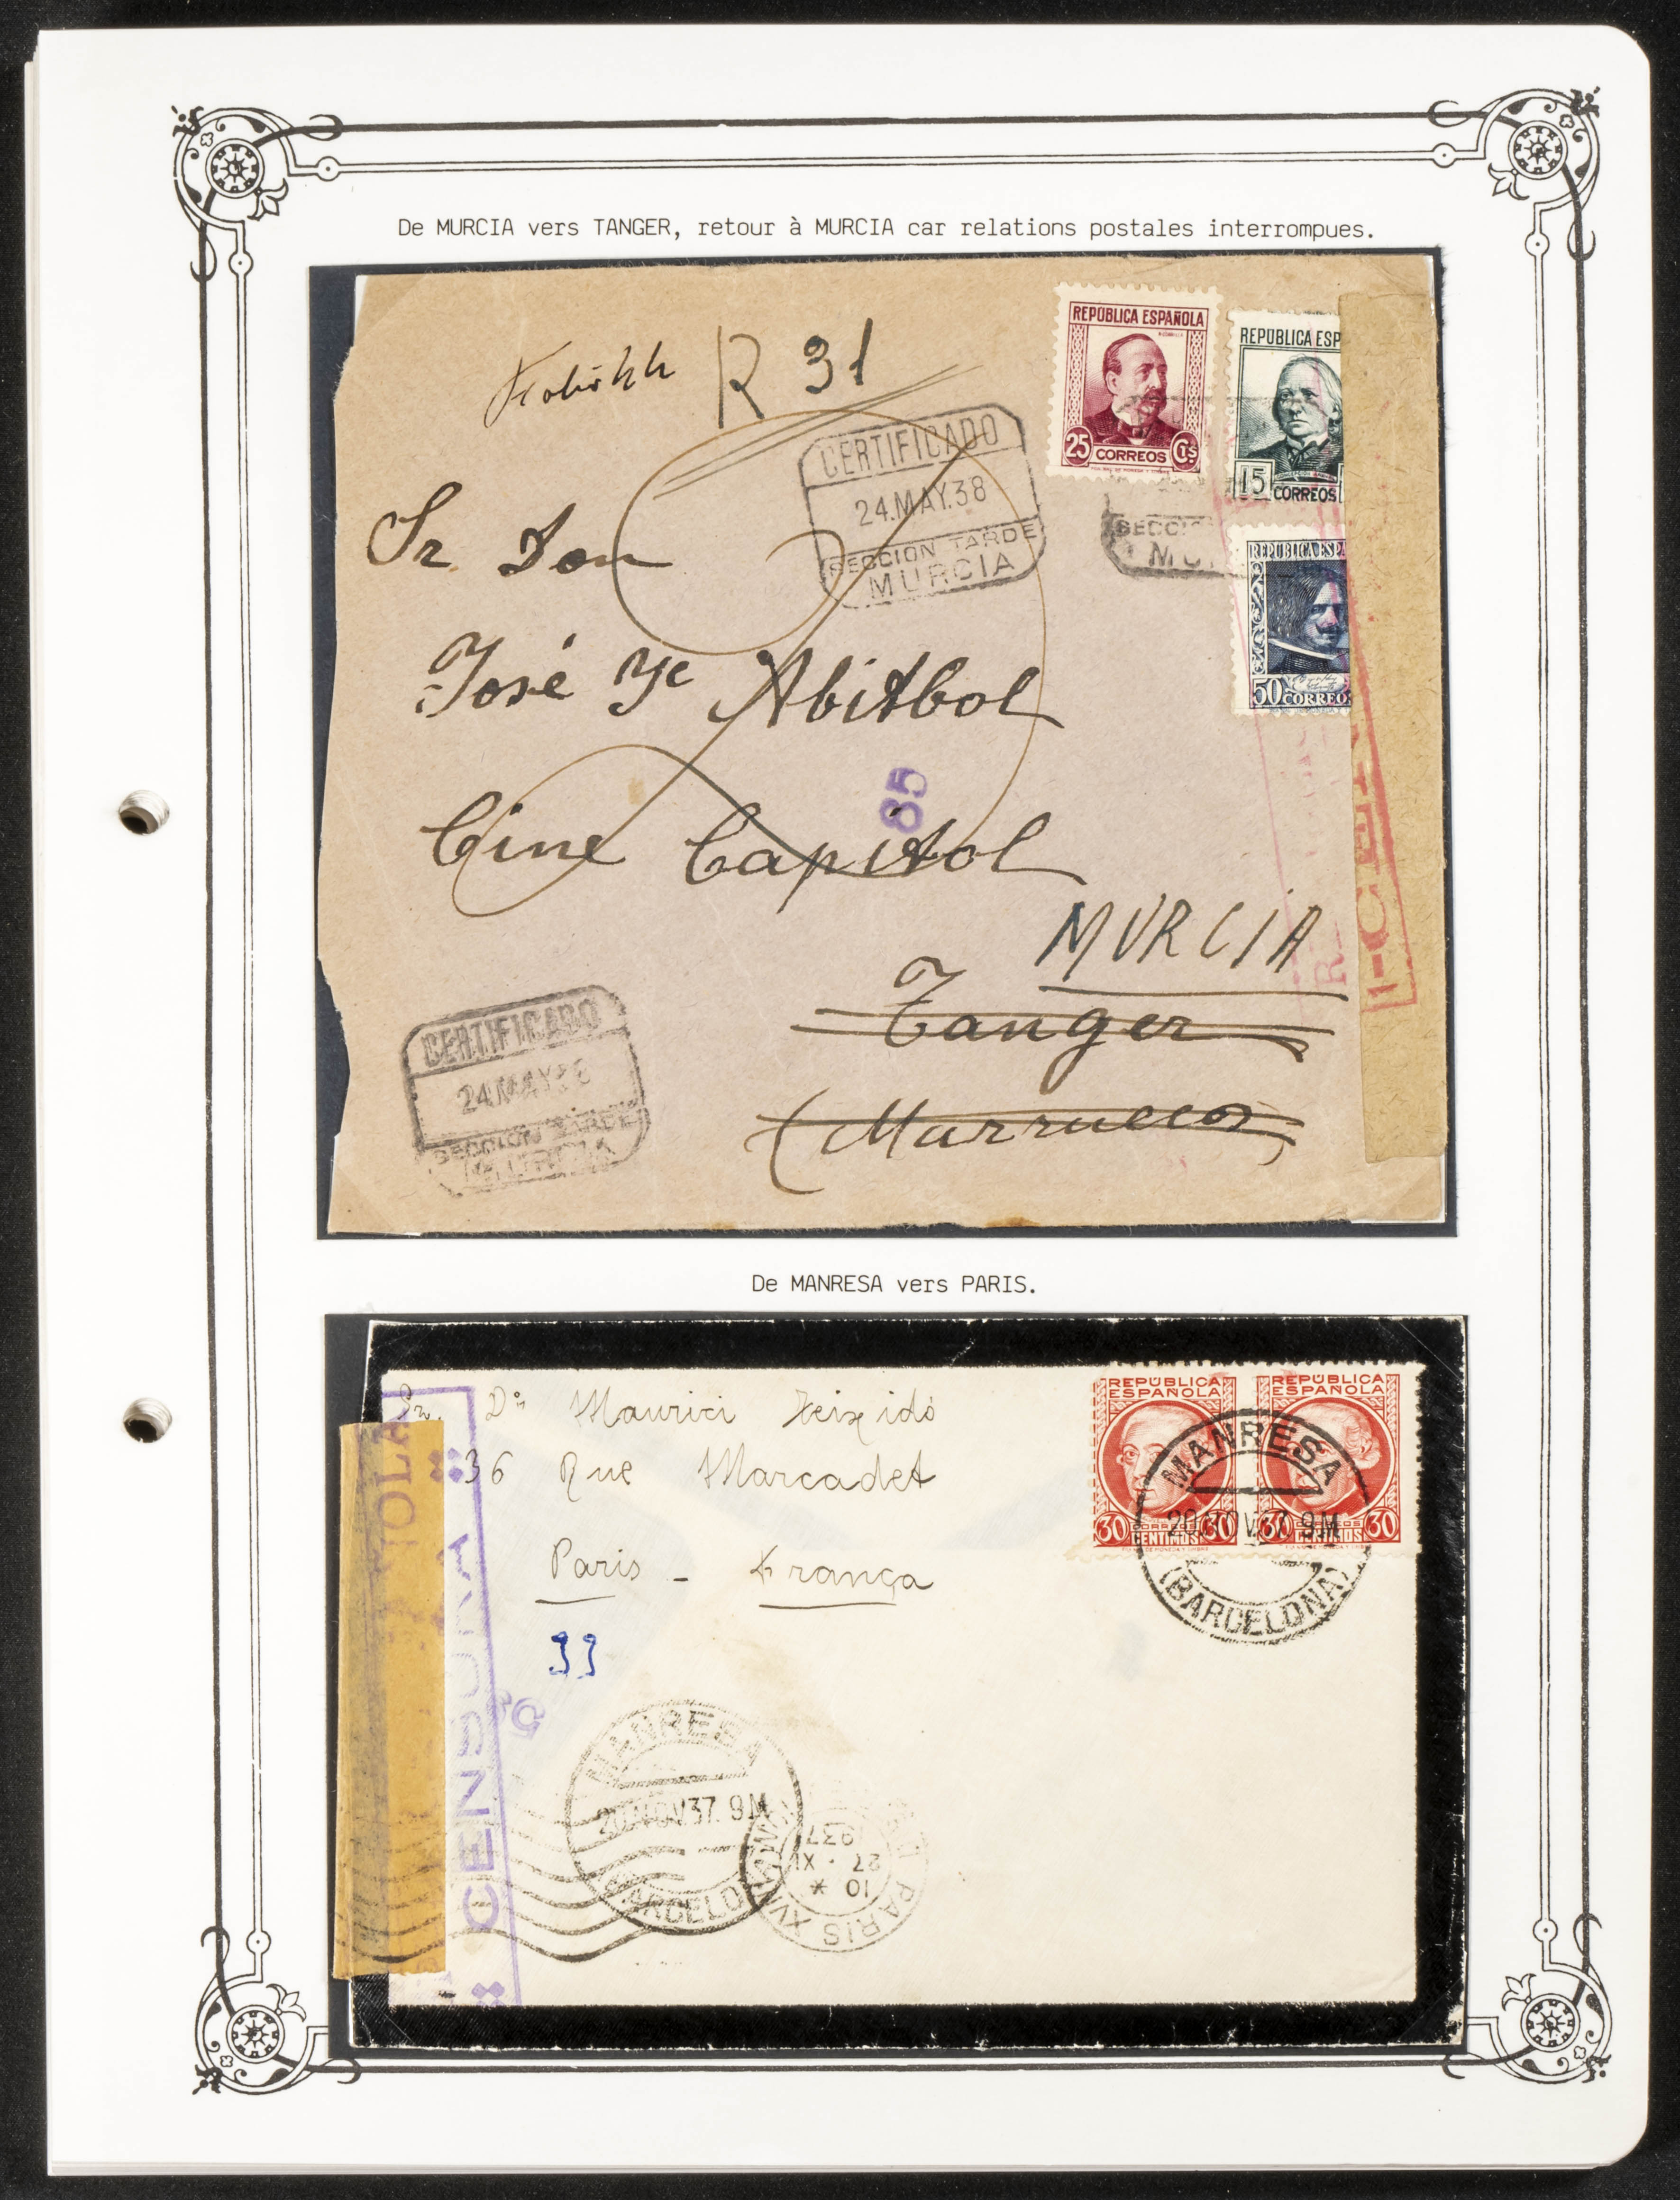 De MURCIA vers TANGER, retour à MURCIA car relations postales interrompues.
R 31
REPÚBLICA ESPAÑOLA
25 CORREOS Cts
REPÚBLICA ESP
15 CORREOS
REPUBLICA ESPA
50 CORREOS
CERTIFICADO
24.MAY.38
SECCION TARDE
MURCIA
SECCI
MU
Sr. Don
José Ye Abitbol
85
Cine Capitol
MURCIA
Tanger
(Marruecos)
CERTIFICADO
24 MAY 38
SECCION TARDE
MURCIA
De MANRESA vers PARIS.
Sr. Dn Maurici Teixidó
36 Rue Marcadet
Paris - França
33
REPÚBLICA ESPAÑOLA
30 CORREOS 30
CENTIMOS
REPÚBLICA ESPAÑOLA
30 CORREOS 30
CENTIMOS
MANRESA
20.NOV.37. 9M
(BARCELONA)
CENSURA
MANRESA
20.NOV37. 9M
BARCELONA
PARIS XVIII
10 *
27 · XI
1937